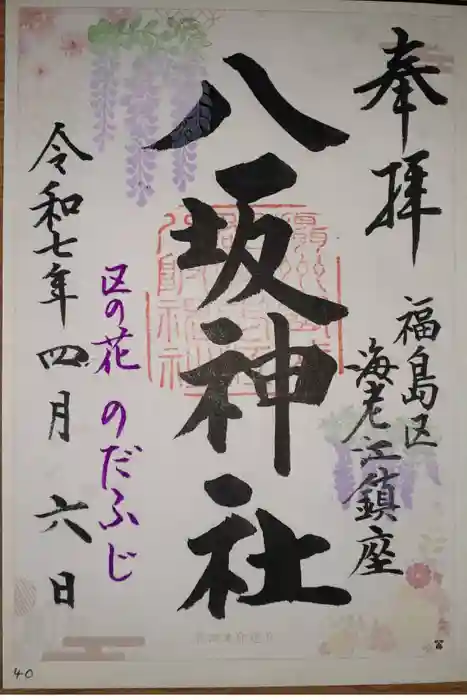 奉拝
福島区
海老江鎮座
八坂神社
区の花 のだふじ
令和七年 四月 六日
40